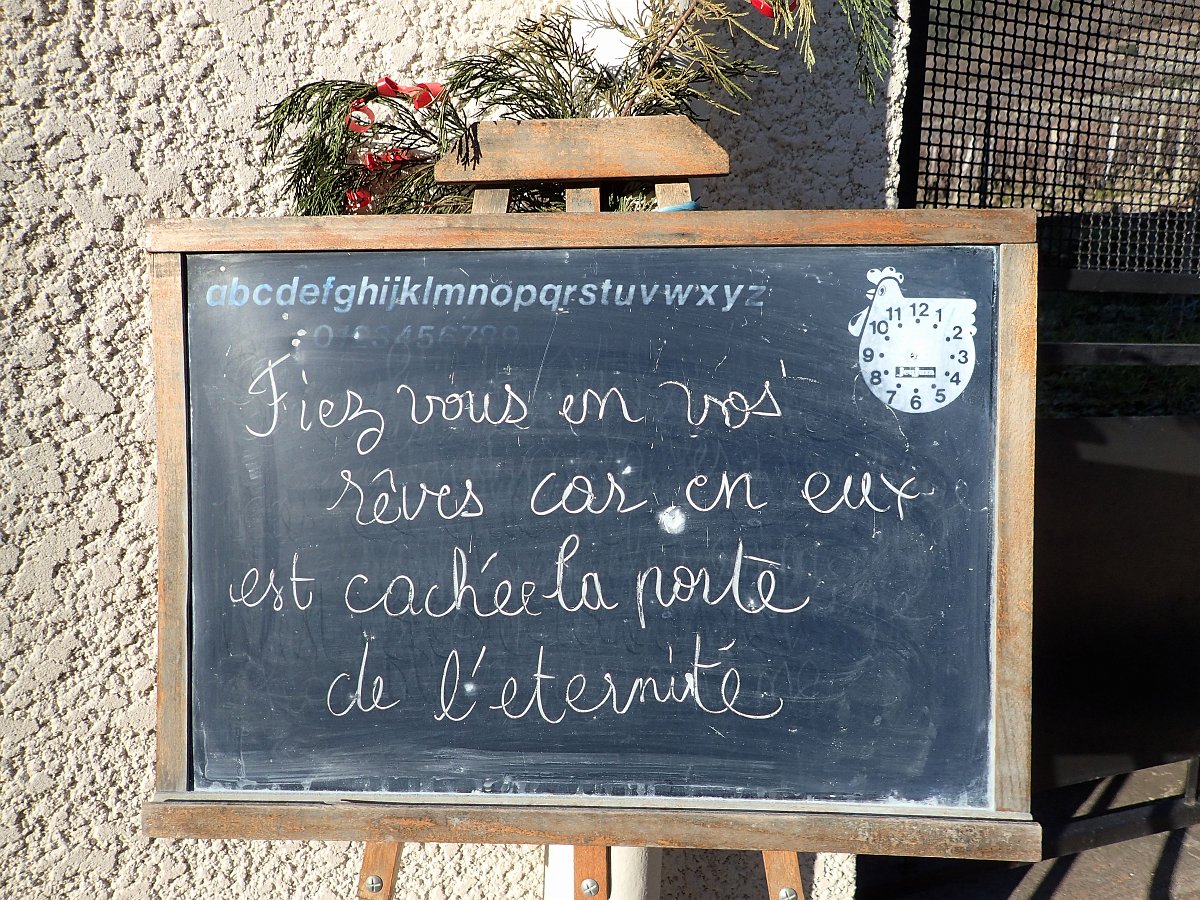 abcdefghijklmnopqrstuvwxyz
0123456789
12
11 1
10 2
9 3
Jeujura
8 4
7 5
6
Fiez vous en vos
rêves car en eux
est cachée la porte
de l'eternité